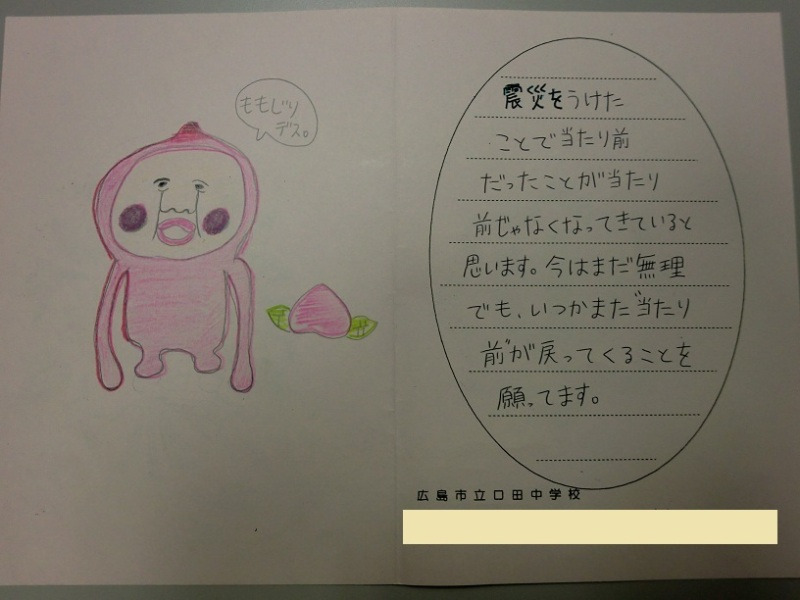 ももじり
デス。
震災をうけた
ことで当たり前
だったことが当たり
前じゃなくなってきていると
思います。今はまだ無理
でも、いつかまた当たり
前が戻ってくることを
願ってます。
広島市立口田中学校